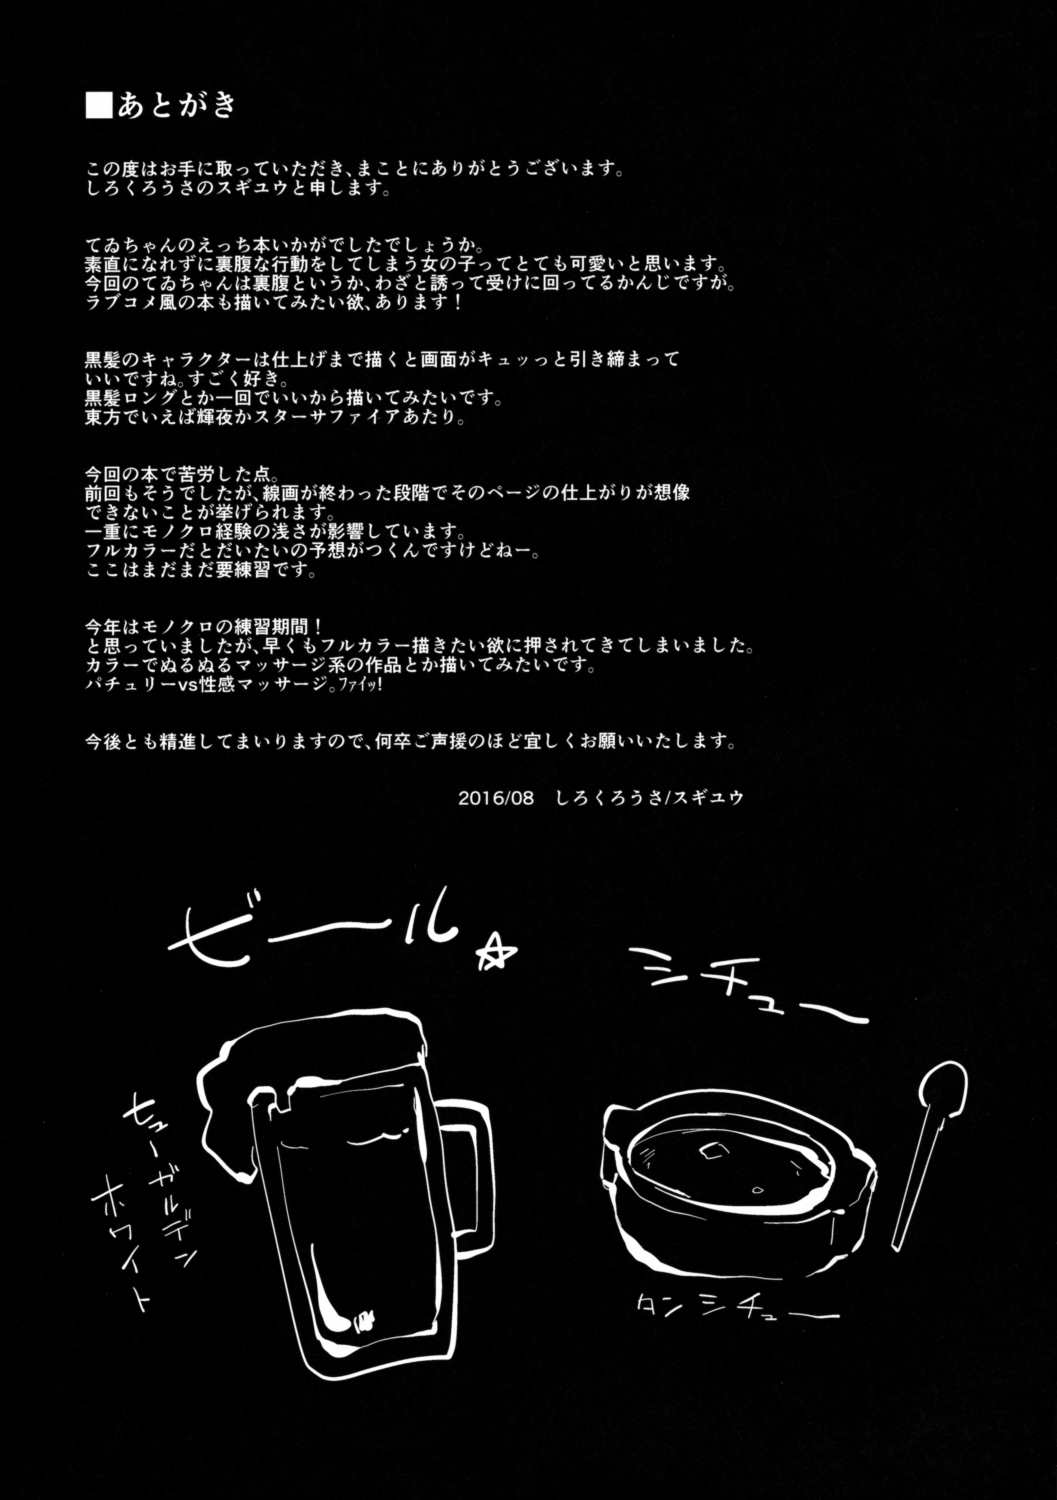 ■あとがき
この度はお手に取っていただき、まことにありがとうございます。
しろくろうさのスギユウと申します。
てゐちゃんのえっち本いかがでしたでしょうか。
素直になれずに裏腹な行動をしてしまう女の子ってとても可愛いと思います。
今回のてゐちゃんは裏腹というか、わざと誘って受けに回ってるかんじですが。
ラブコメ風の本も描いてみたい欲、あります！
黒髪のキャラクターは仕上げまで描くと画面がキュッっと引き締まって
いいですね。すごく好き。
黒髪ロングとか一回でいいから描いてみたいです。
東方でいえば輝夜かスターサファイアあたり。
今回の本で苦労した点。
前回もそうでしたが、線画が終わった段階でそのページの仕上がりが想像
できないことが挙げられます。
一重にモノクロ経験の浅さが影響しています。
フルカラーだとだいたいの予想がつくんですけどねー。
ここはまだまだ要練習です。
今年はモノクロの練習期間！
と思っていましたが、早くもフルカラー描きたい欲に押されてきてしまいました。
カラーでぬるぬるマッサージ系の作品とか描いてみたいです。
パチュリーvs性感マッサージ。ﾌｧｲｯ!
今後とも精進してまいりますので、何卒ご声援のほど宜しくお願いいたします。
2016/08　しろくろうさ/スギユウ
ビール☆
シチュー
ヒューガルデン
ホワイト
タンシチュー